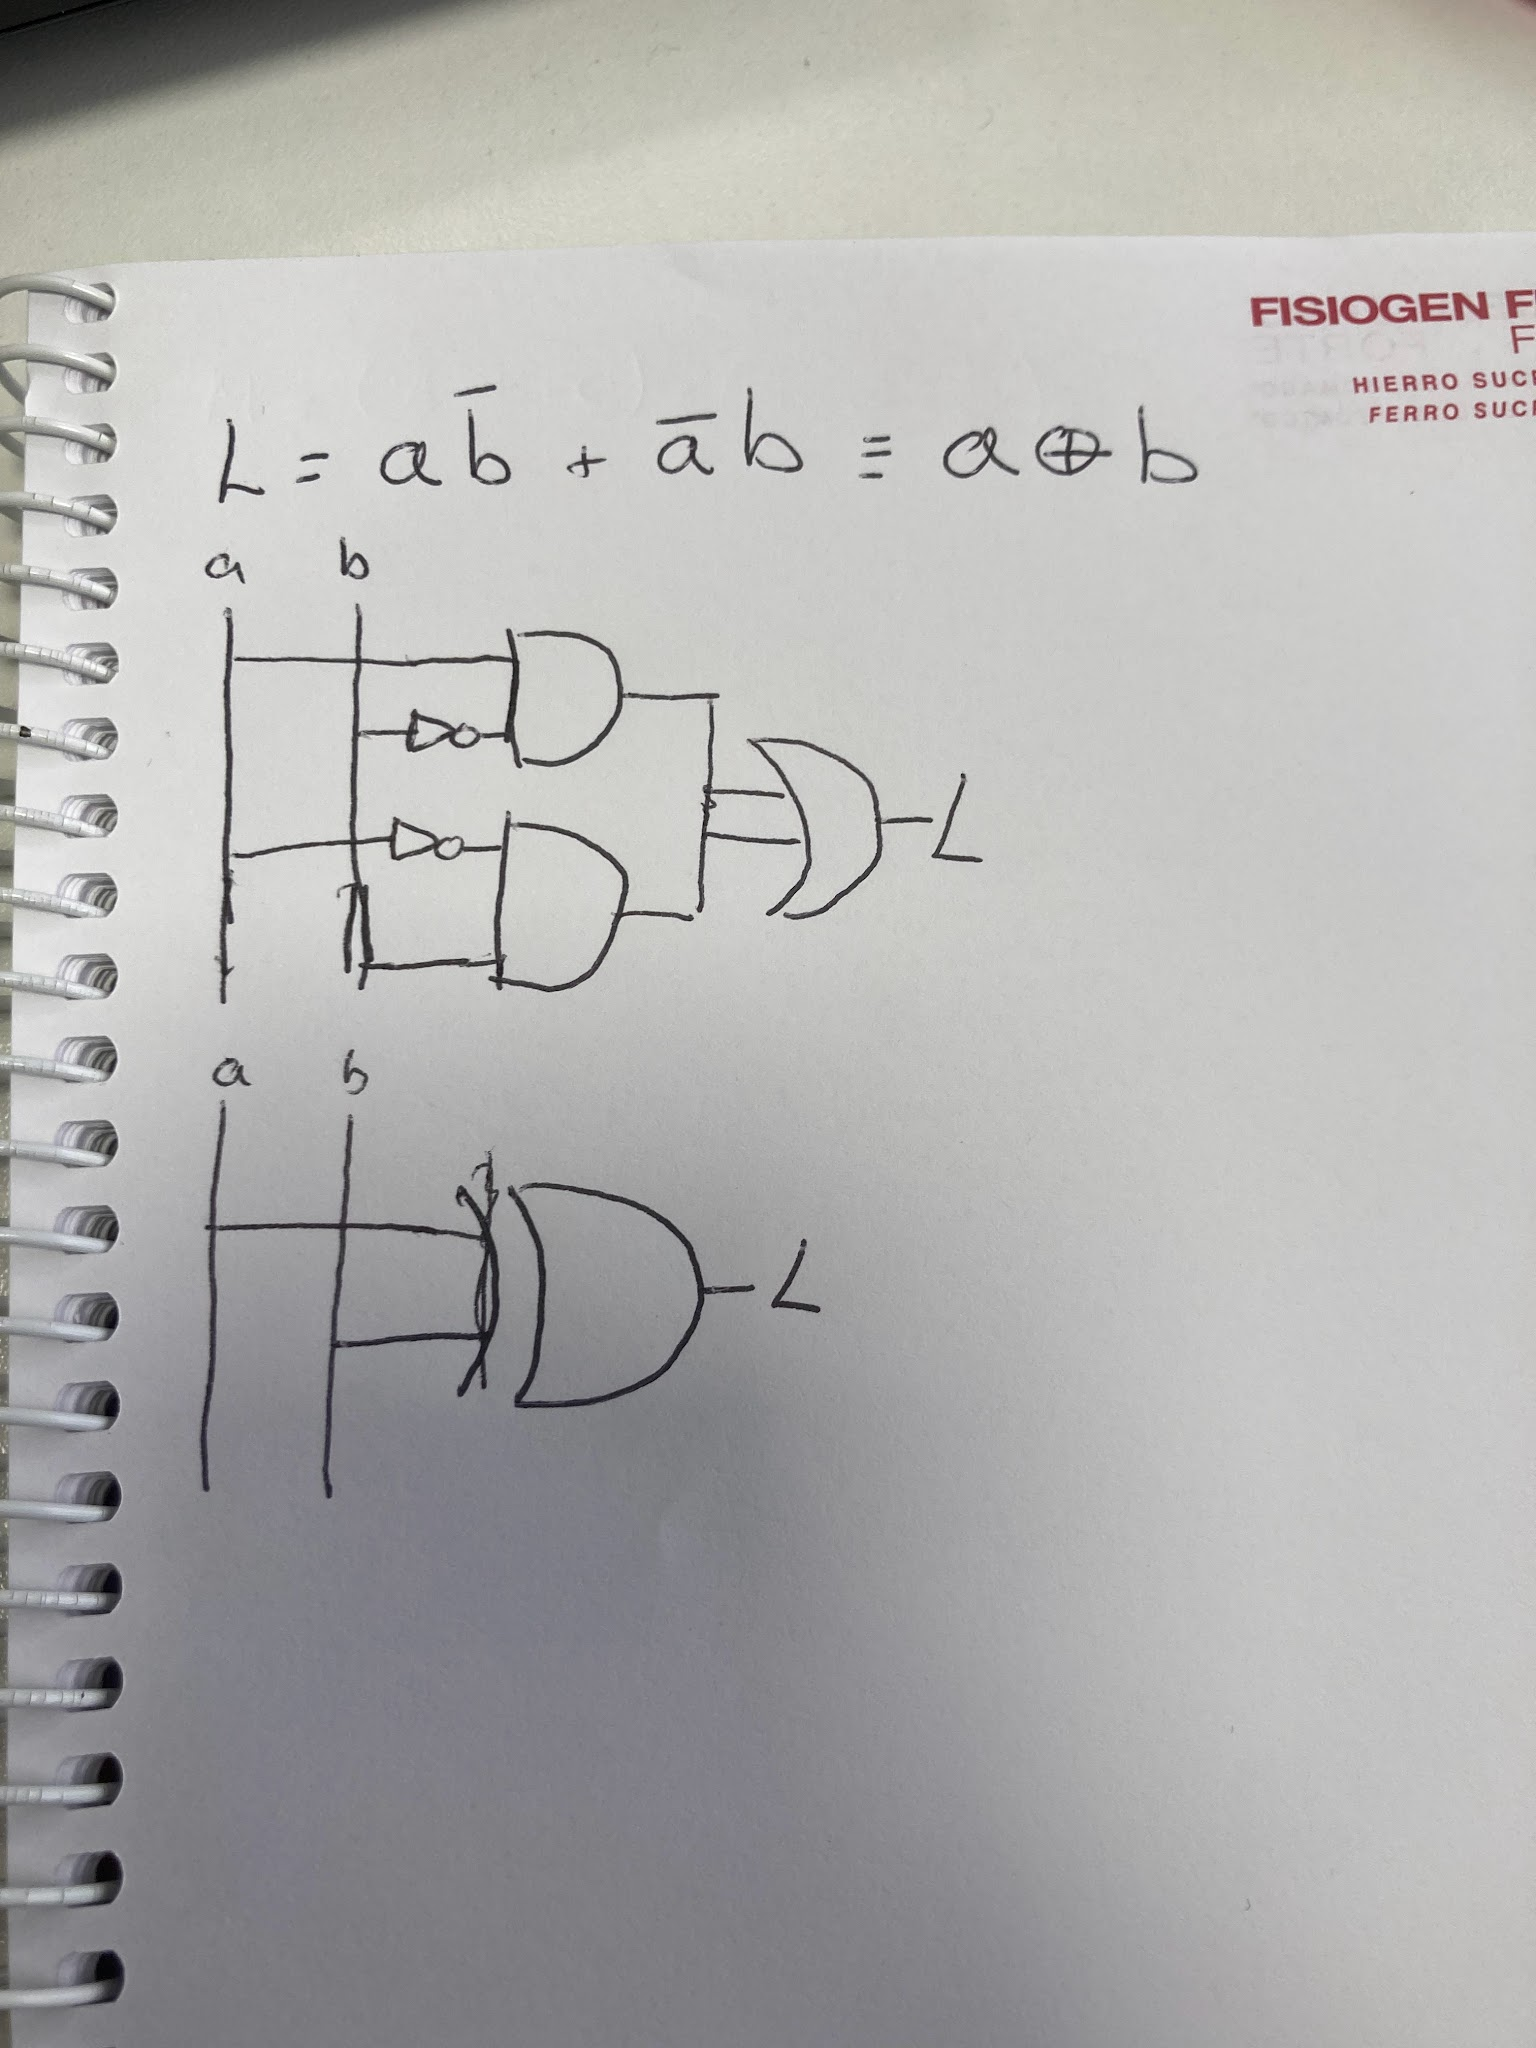 FISIOGEN
HIERRO
FERRO
L = ab̅ + a̅b ≡ a ⊕ b
a b
L
a b
L